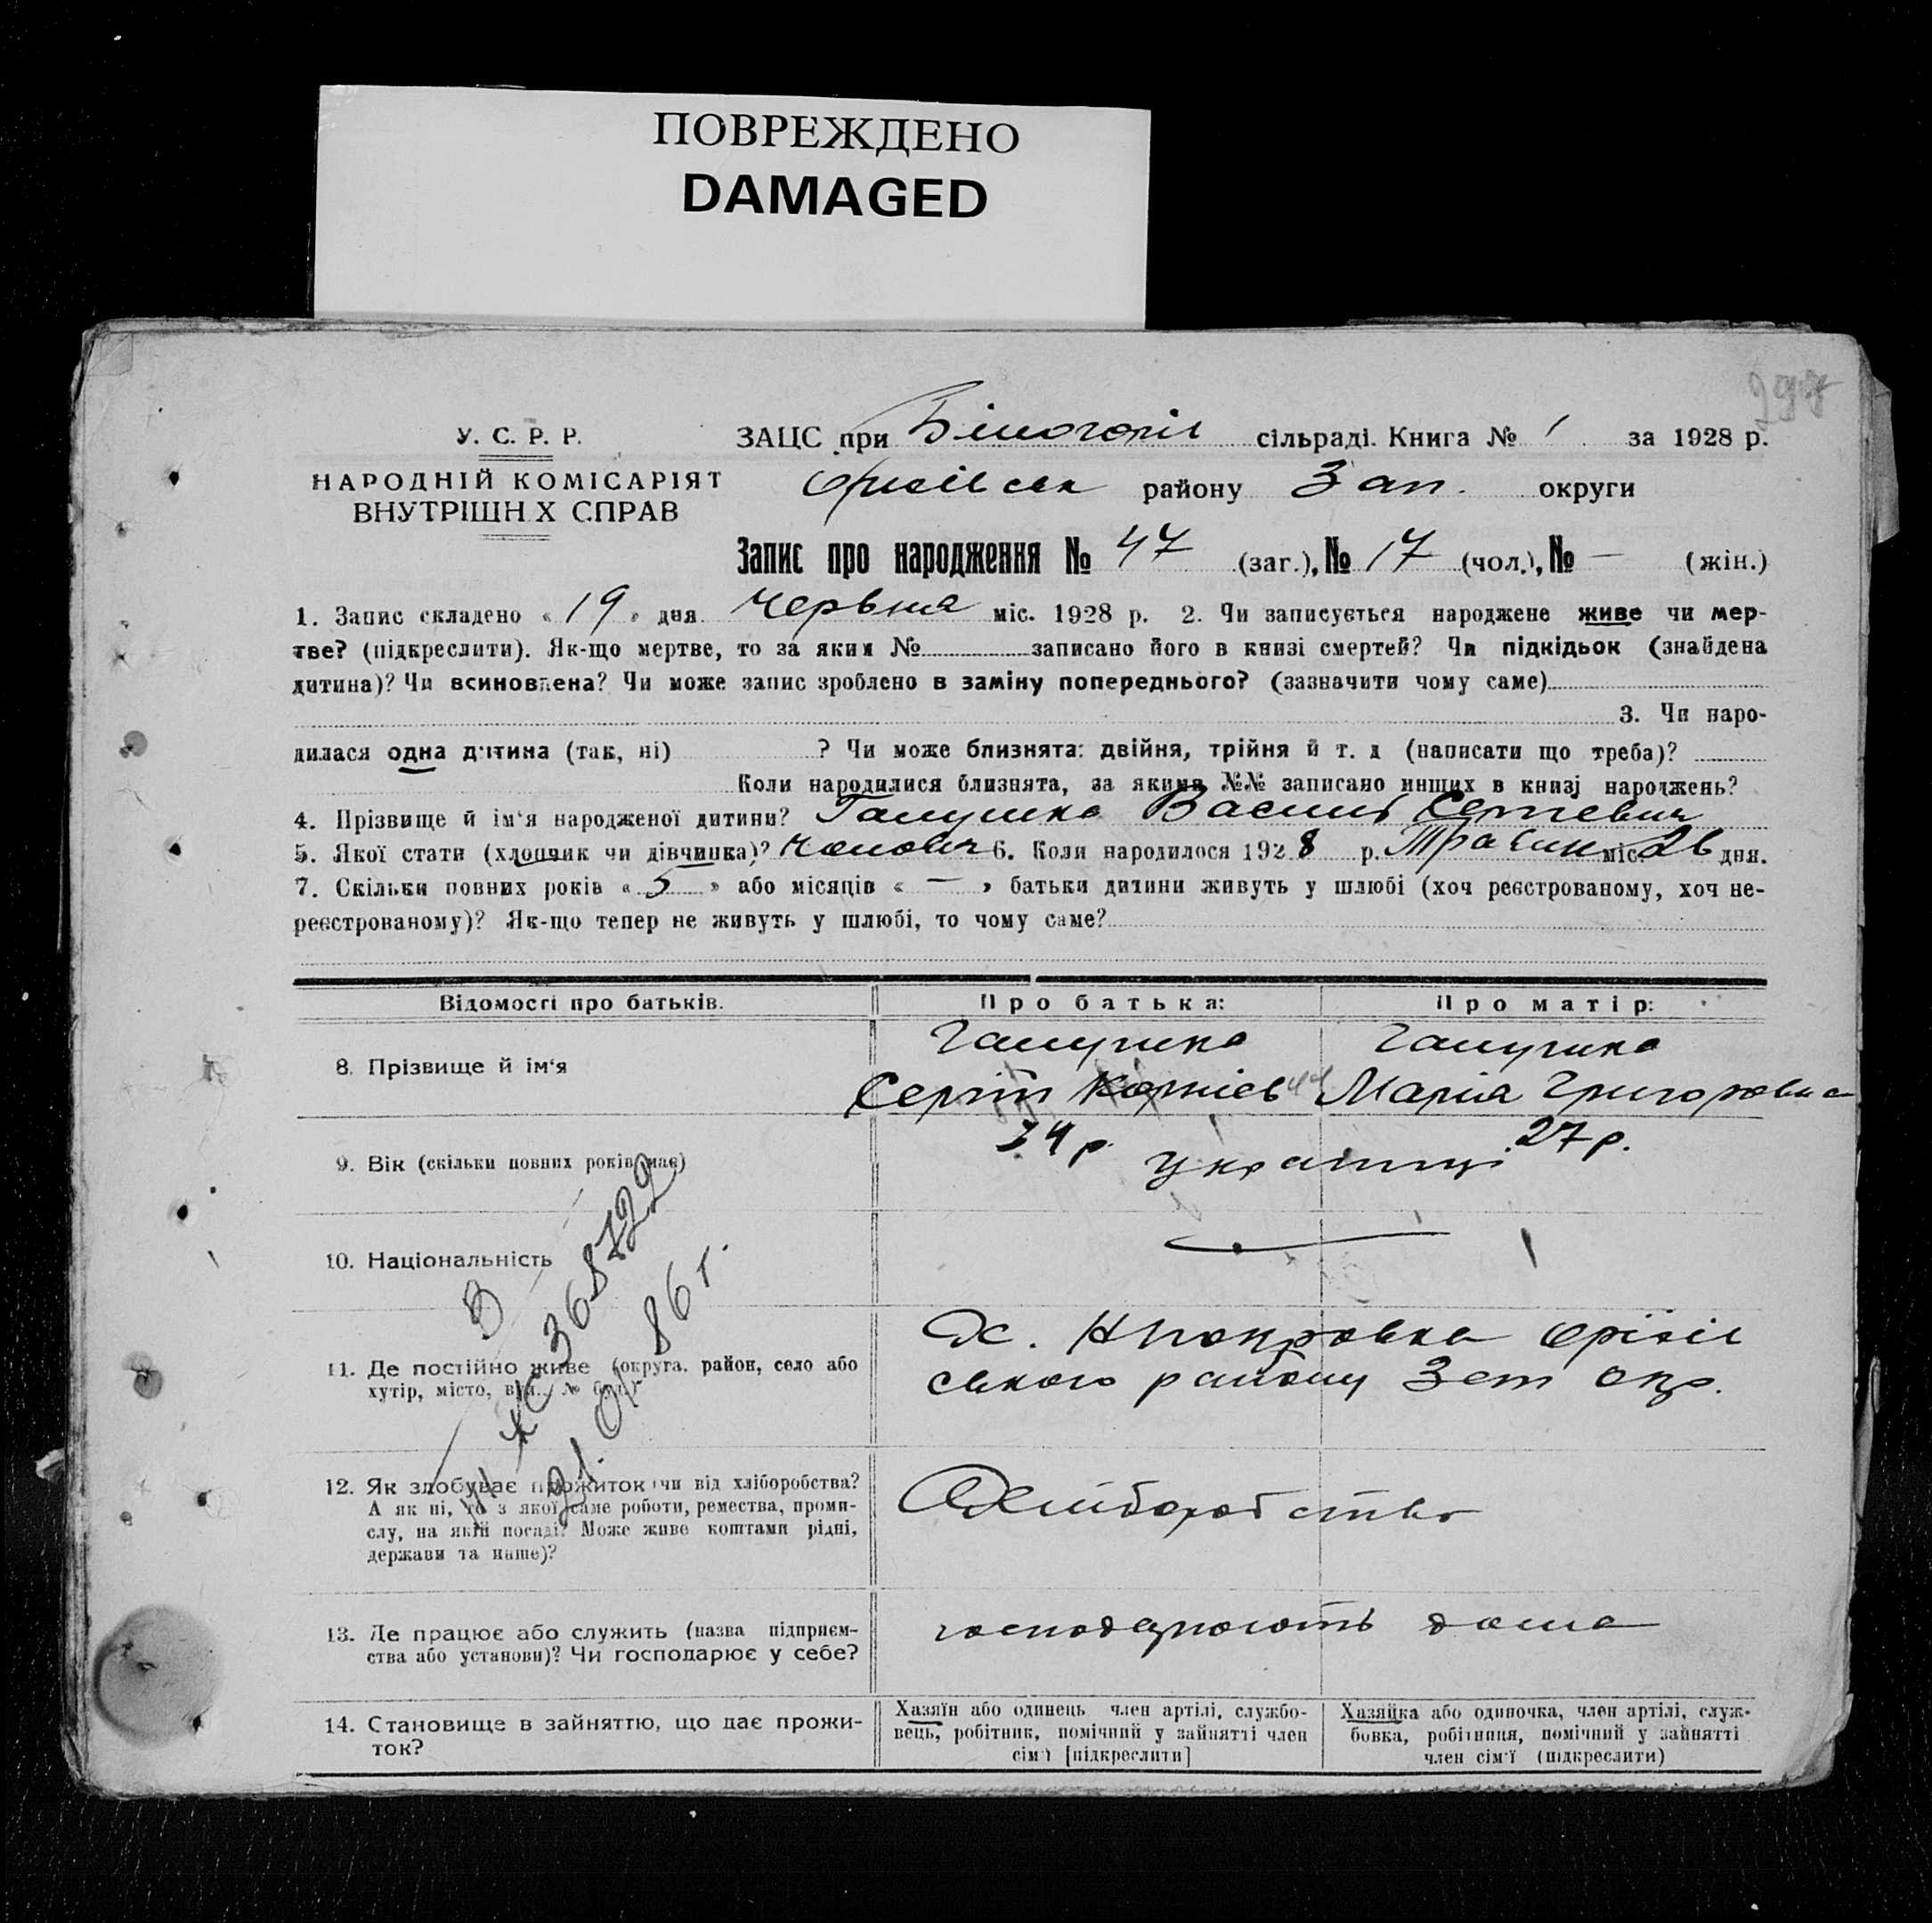 ПОВРЕЖДЕНО
DAMAGED
У. С. Р. Р.
НАРОДНІЙ КОМІСАРІЯТ
ВНУТРІШН Х СПРАВ
ЗАЦС при Білогорій сільраді. Книга № 1 за 1928 р.
району Зап. округи
Запис про народження № 47 (заг.), № 17 (чол.), № — (жін.)
1. Запис складено « 19 » дня червня міс. 1928 р. 2. Чи записується народжене живе чи мер-
тве? (підкреслити). Як-що мертве, то за яким № записано його в книзі смертей? Чи підкідьок (знайдена
дитина)? Чи всиновлена? Чи може запис зроблено в заміну попереднього? (зазначити чому саме)
3. Чи наро-
дилася одна дитина (так, ні) ? Чи може близнята: двійня, трійня й т. д (написати що треба)?
Коли народилися близнята, за якими №№ записано инших в книзі народжень?
4. Прізвище й ім'я народженої дитини? Галушка Василь Сергієвич
5. Якої стати (хлопчик чи дівчинка)? чоловіч 6. Коли народилося 1928 р. Травня міс 26 дня.
7. Скільки повних років « 5 » або місяців « — » батьки дитини живуть у шлюбі (хоч реєстрованому, хоч не-
реєстрованому)? Як-що тепер не живуть у шлюбі, то чому саме?
Відомості про батьків. Про батька: Про матір:
8. Прізвище й ім'я
Галушка Галушка
Сергій Корнієв Марія Григоровна
9. Вік (скільки повних років має) 34 р. 27 р.
українці
10. Національність
11. Де постійно живе (округа, район, село або
хутір, місто, вул., № буд.)
Х. Оріхів
ського району Зап окр.
368722
86 г.
12. Як здобуває прожиток (чи від хліборобства?
А як ні, то з якої саме роботи, ремества, проми-
слу, на якій посаді? Може живе коштами рідні,
держави та инше)?
Хліборобство
13. Де працює або служить (назва підприєм-
ства або установи)? Чи господарює у себе?
господарюють дома
14. Становище в зайняттю, що дає прожи-
ток?
Хазяїн або одинець член артілі, службо-
вець, робітник, помічний у зайнятті член
сім'ї [підкреслити]
Хазяйка або одиночка, член артілі, служ-
бовка, робітниця, помічний у зайнятті
член сім'ї (підкреслити)